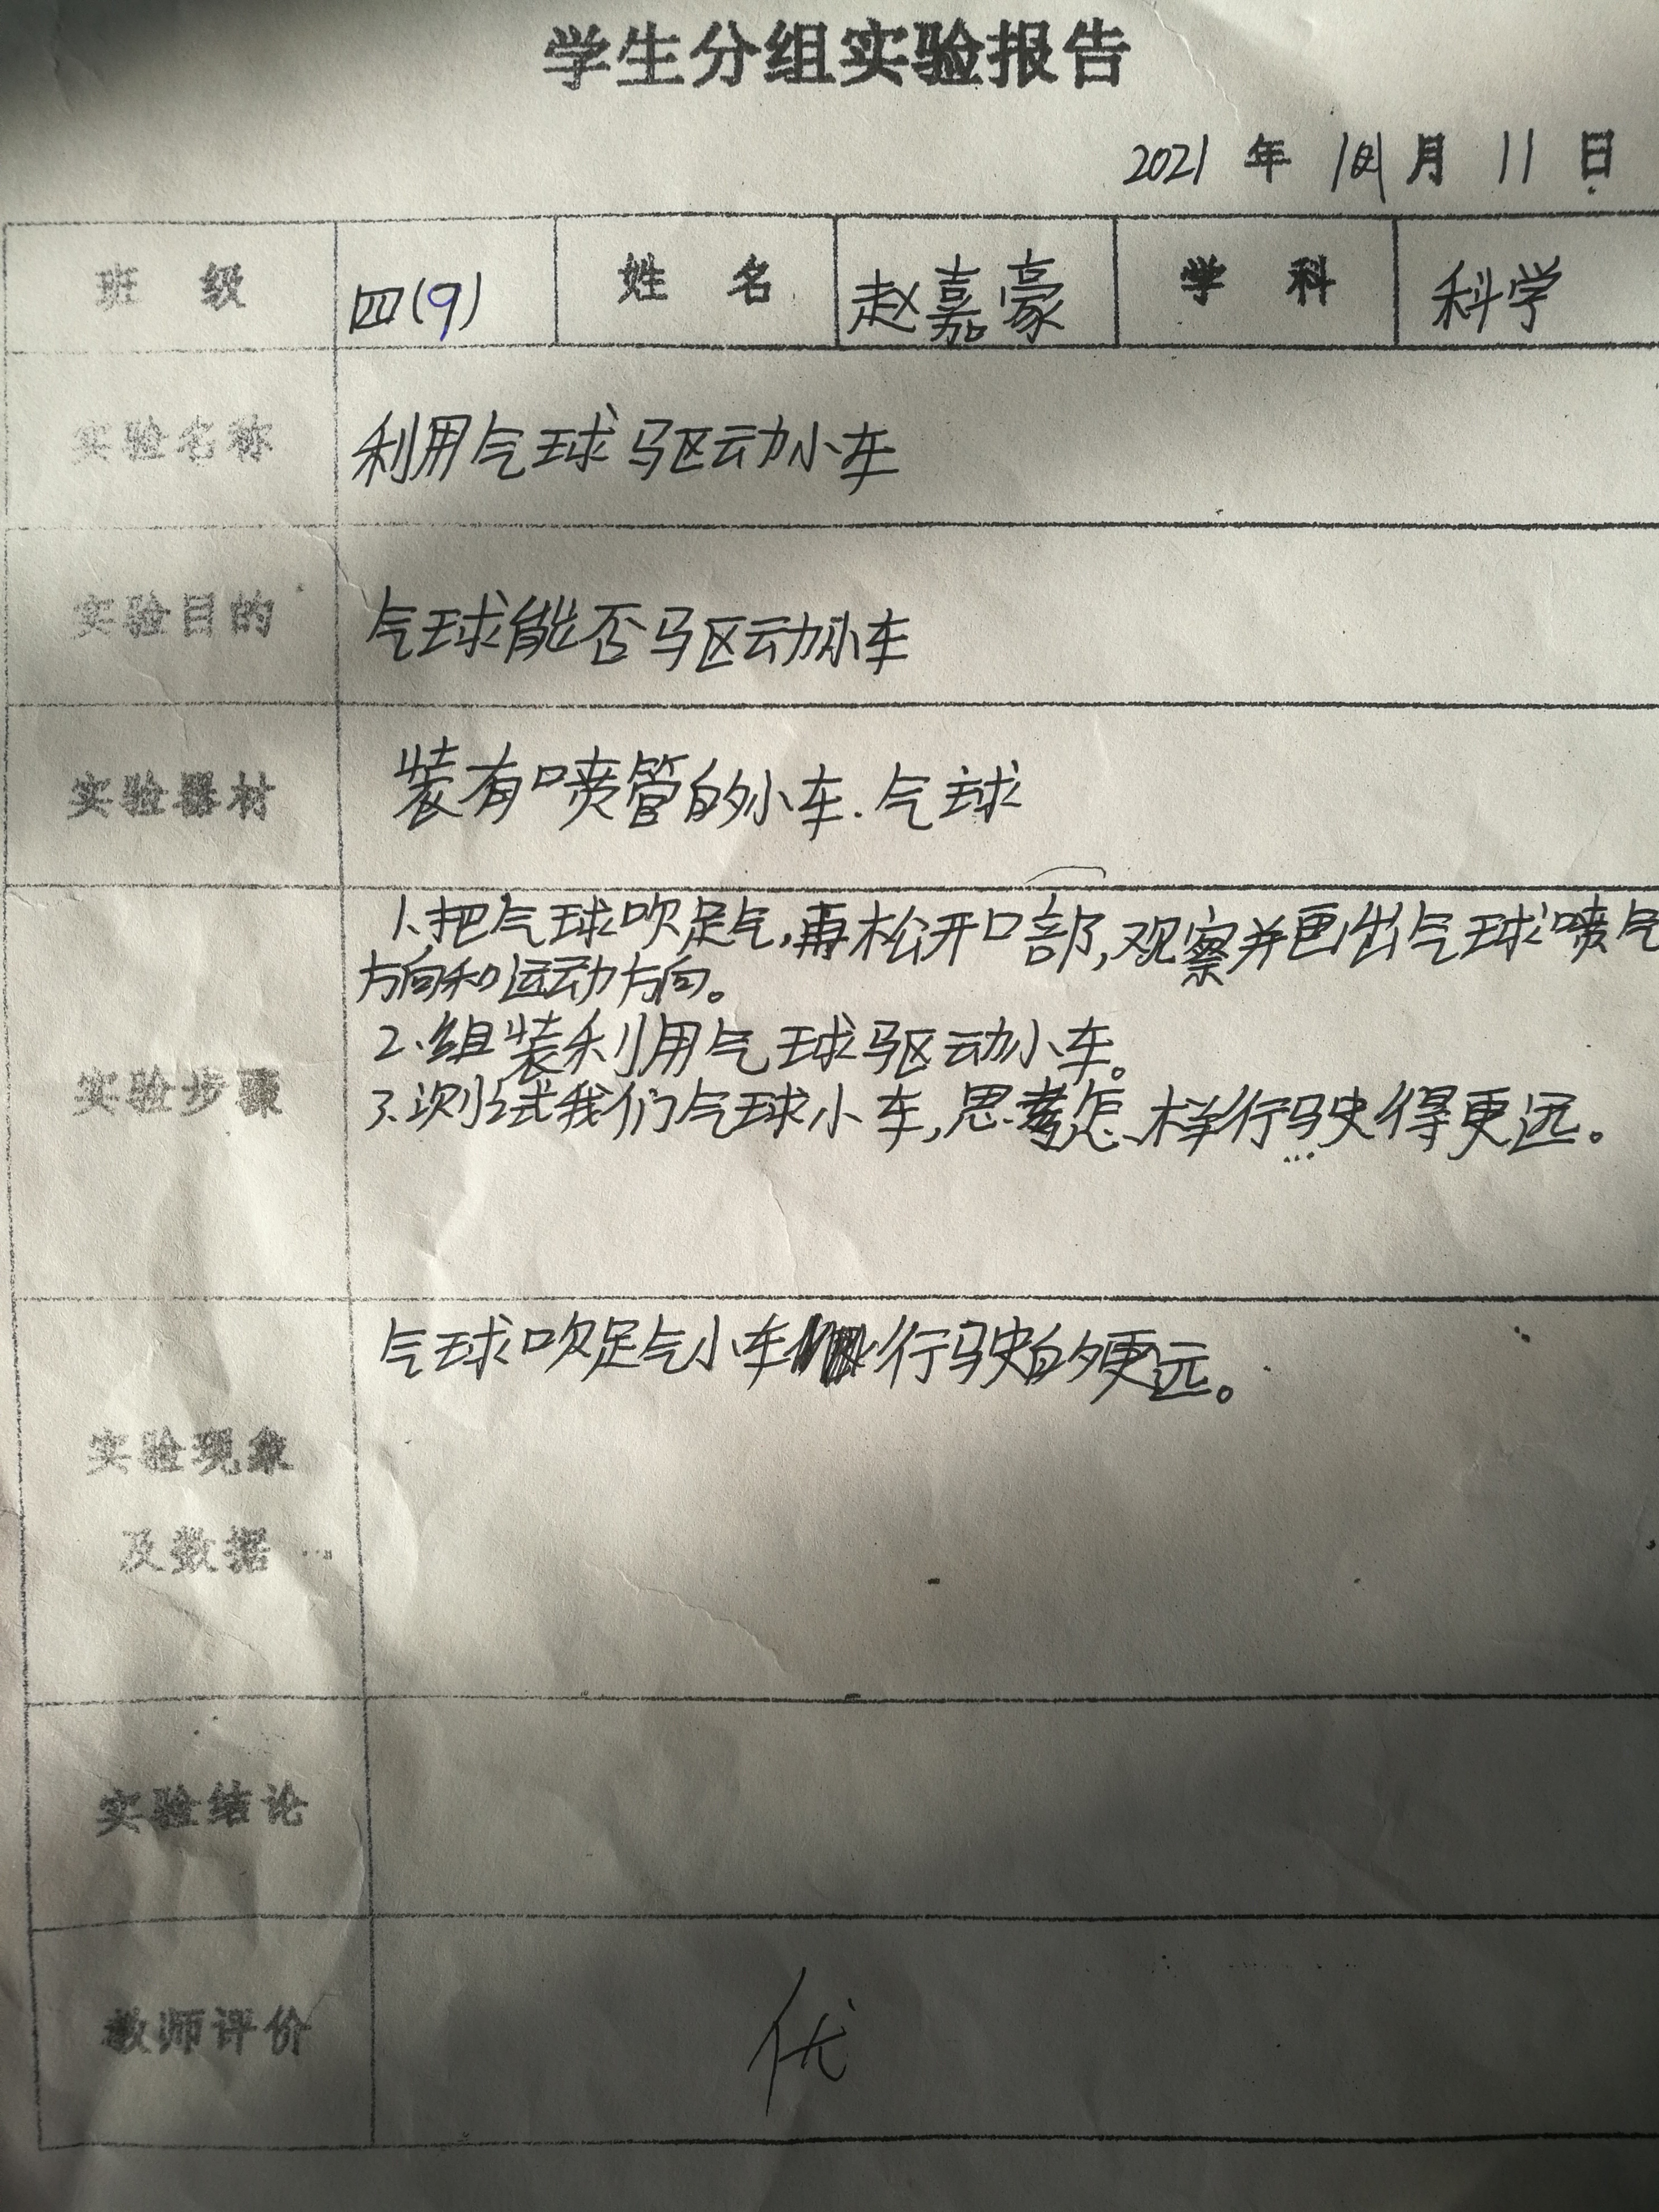 学生分组实验报告
2021 年 月 11 日
班 级 四(9) 姓 名 赵嘉豪 学 科 科学
实验名称 利用气球驱动小车
实验目的 气球能否驱动小车
实验器材 装有喷管的小车.气球
1、把气球吹足气,再松开口部,观察并画出气球喷气
方向和运动方向。
2、组装利用气球驱动小车。
实验步骤
3、测试我们气球小车,思考怎样行驶得更远。
气球吹足气小车行驶的更远。
实验现象
及数据
实验结论
教师评价 优